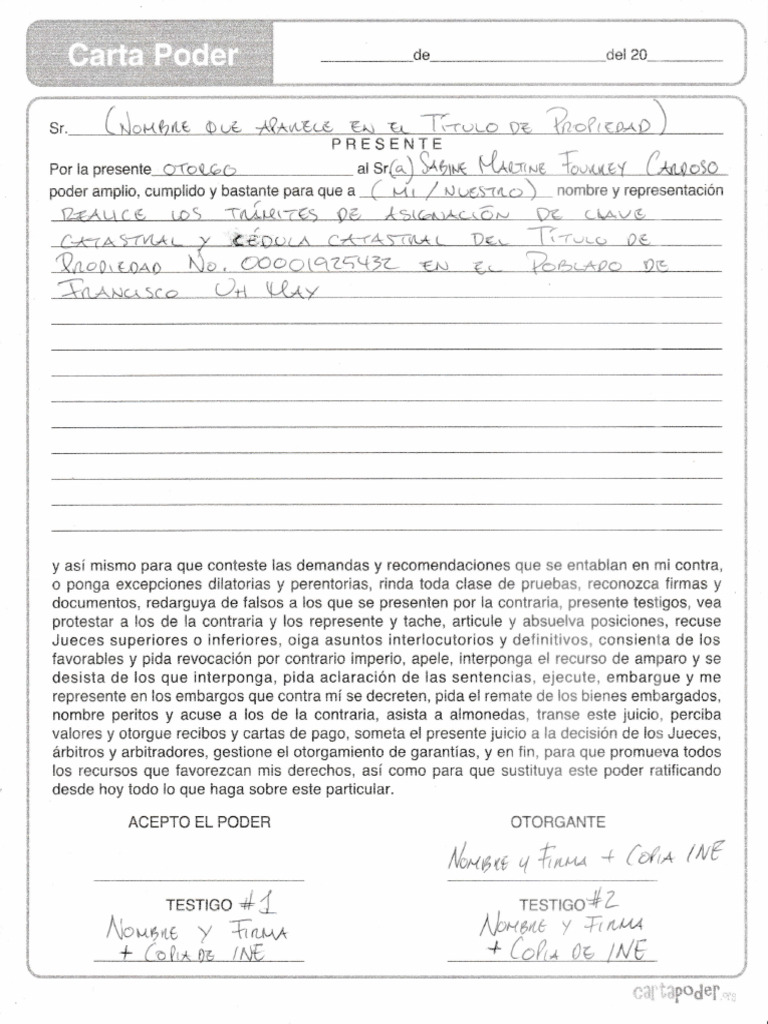 Carta Poder
__________de____________________del 20________
Sr. (NOMBRE QUE APARECE EN EL TÍTULO DE PROPIEDAD)
PRESENTE
Por la presente OTORGO al Sr(a) SABINE MARTINE FOURREY CARDOSO
poder amplio, cumplido y bastante para que a (MI/NUESTRO) nombre y representación
REALICE LOS TRÁMITES DE ASIGNACIÓN DE CLAVE
CATASTRAL Y CÉDULA CATASTRAL DEL TÍTULO DE
PROPIEDAD NO. 00001925432 EN EL POBLADO DE
FRANCISCO UH MAY
y así mismo para que conteste las demandas y recomendaciones que se entablan en mi contra,
o ponga excepciones dilatorias y perentorias, rinda toda clase de pruebas, reconozca firmas y
documentos, redarguya de falsos a los que se presenten por la contraria, presente testigos, vea
protestar a los de la contraria y los represente y tache, articule y absuelva posiciones, recuse
Jueces superiores o inferiores, oiga asuntos interlocutorios y definitivos, consienta de los
favorables y pida revocación por contrario imperio, apele, interponga el recurso de amparo y se
desista de los que interponga, pida aclaración de las sentencias, ejecute, embargue y me
represente en los embargos que contra mí se decreten, pida el remate de los bienes embargados,
nombre peritos y acuse a los de la contraria, asista a almonedas, transe este juicio, perciba
valores y otorgue recibos y cartas de pago, someta el presente juicio a la decisión de los Jueces,
árbitros y arbitradores, gestione el otorgamiento de garantías, y en fin, para que promueva todos
los recursos que favorezcan mis derechos, así como para que sustituya este poder ratificando
desde hoy todo lo que haga sobre este particular.
ACEPTO EL PODER OTORGANTE
NOMBRE Y FIRMA + COPIA INE
TESTIGO #1 TESTIGO #2
NOMBRE Y FIRMA NOMBRE Y FIRMA
+ COPIA DE INE + COPIA DE INE
cartapoder.org